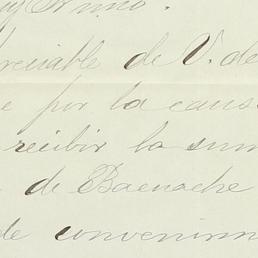 y Nuño.
preciable de V. de
e por la caus
recibir la sum
de Baenache
de convenim